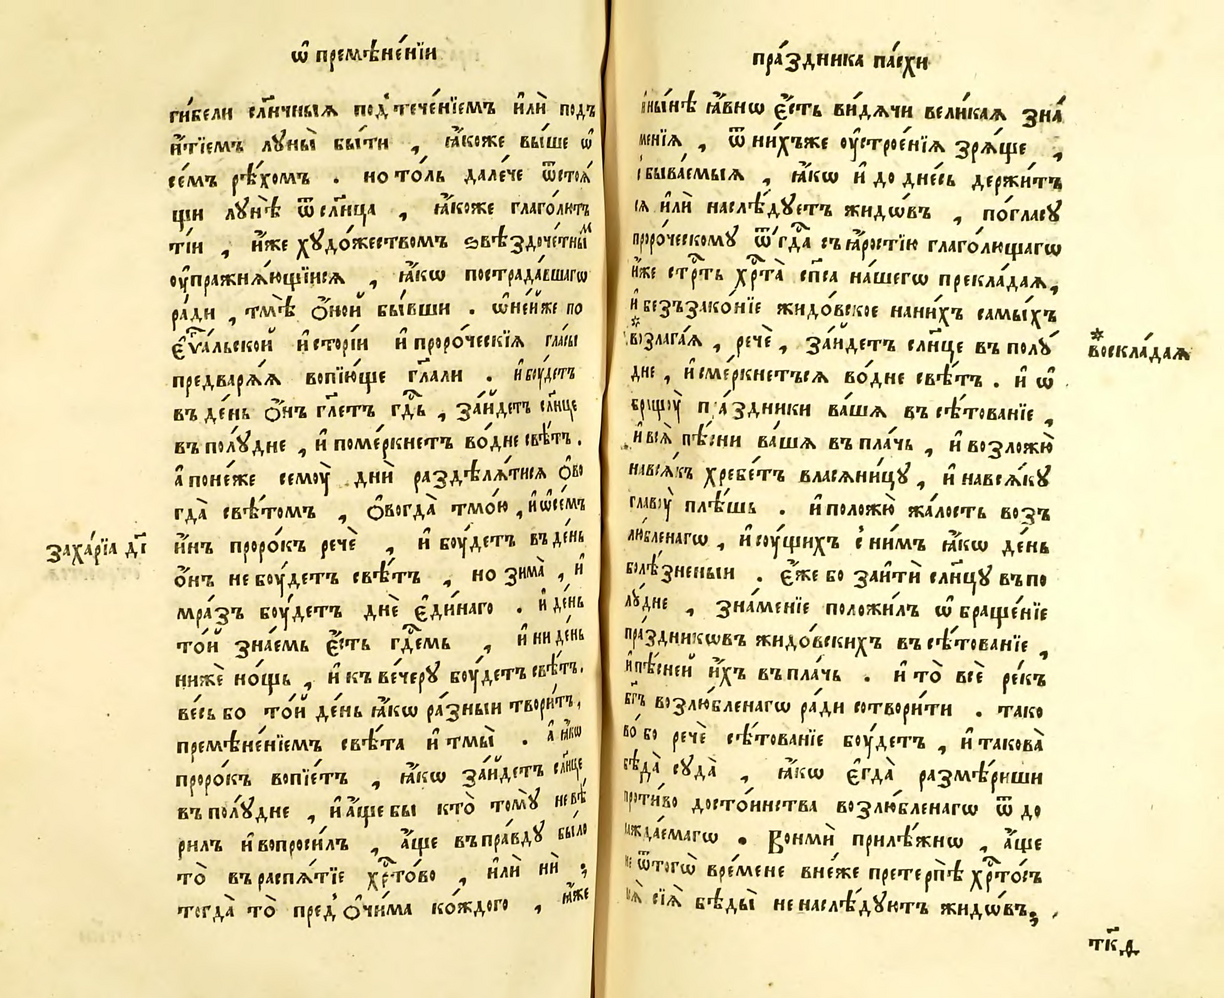 ѡ҆ премѣне́нїи
ги́бели сл҃нчныѧ под̾тече́нїемъ и҆лѝ подъ
ѧ҆́тїемъ лꙋны̀ бы́ти , ꙗ҆́коже вы́ше ѡ҆
се́мъ рѣ́хомъ . но то́ль дале́че ѿстоѧ́
щи лꙋнѣ̀ ѿ сл҃нца , ꙗ҆́коже глаго́лютъ
ті́и , и҆́же хꙋдо́жествомъ ѕвѣздоче́тныⷨ
ѹ҆пражнѧ́ющїисѧ , ꙗ҆́кѡ пострада́вшагѡ
ра́ди , тмѣ̀ ѻ҆́ной бы́вши . ѡ҆не́йже по
є҆ѵⷢ҇а́льской и҆сто́рїи и҆ проро́ческїѧ гла́сы
предварѧ́ѧ вопїю́ще гл҃али . и҆ бꙋ́детъ
въ де́нь ѻ҆́нъ гл҃етъ гдⷭ҇ь , за́йдетъ сл҃нце
въ полꙋ́дне , и҆ поме́ркнетъ во́дне свѣ́тъ .
а҆ поне́же семꙋ̀ дни́ раздѣлѧ́тисѧ ѻ҆во
гда̀ свѣ́томъ , ѻ҆вогда̀ тмо́ю , и҆ ѡ҆се́мъ
и҆́нъ проро́къ речѐ , и҆ бꙋ́детъ въ де́нь
заха́рїа д҃і
ѻ҆́нъ не бꙋ́детъ свѣ́тъ , но зима̀ , и҆
мра́зъ бꙋ́детъ днѐ є҆ди́наго . и҆ де́нь
то́й зна́емь є҆́сть гдⷭ҇емь , и҆ ни де́нь
нижѐ но́щь , и҆ къ ве́черꙋ бꙋ́детъ свѣ́тъ .
ве́сь бо то́й де́нь ꙗ҆́кѡ ра́зныи твори́тъ ,
премѣне́нїемъ свѣ́та и҆ тмы̀ . а҆ ꙗ҆́кѡ
проро́къ вопїе́тъ , ꙗ҆́кѡ за́йдетъ сл҃нце
въ полꙋ́дне , и҆ а҆́ще бы кто̀ томꙋ̀ не вѣ́
рилъ и҆ вопроси́лъ , а҆́ще въ пра́вдꙋ бы́ло
то̀ въ распѧ́тїе хрⷭ҇то́во , и҆лѝ нѝ ;
тогда̀ то̀ пред̾ ѻ҆чи́ма ко́ждого , ꙗ҆́же
пра́здника па́схи
и҆ ны́нѣ ꙗ҆́внѡ є҆́сть ви́дѧчи вели́каѧ зна́
менїѧ , ѿ ни́хъже ѹ҆строе́нїѧ зрѧ́ще ,
сбыва́емыѧ , ꙗ҆́кѡ и҆ до дне́сь держи́тъ
сѧ и҆лѝ наслѣ́дꙋетъ жидѡ́въ , по́гласꙋ
проро́ческомꙋ ѿгда̀ съ ꙗ҆́ростїю глаго́лющагѡ
и҆́же стрⷭ҇ть хрⷭ҇та̀ сп҃са на́шегѡ преклада́ѧ ,
и҆ безъзако́нїе жидо́вское нани́хъ самы́хъ
*возлага́ѧ , речѐ , за́йдетъ сл҃нце въ полꙋ́
*воскла́даѧ
дне , и҆ сме́ркнетъсѧ во́дне свѣ́тъ . и҆ ѡ҆
бращꙋ̀ пра́здники ва́шѧ въ сѣ́тованїе ,
и҆ всѧ̀ пѣ́сни ва́шѧ въ пла́чь , и҆ возложю̀
навсѧ́къ хребе́тъ власѧни́цꙋ , и҆ навсѧ́кꙋ
главꙋ̀ плѣ́шь . и҆ положю̀ жа́лость возъ
лю́бленагѡ , и҆ сꙋ́щихъ с ни́мъ ꙗ҆́кѡ де́нь
болѣ́зненыи . є҆́же бо заитѝ сл҃нцꙋ въ по
лꙋ́дне , зна́менїе положи́лъ ѡ҆браще́нїе
пра́здникѡвъ жидо́вскихъ въ сѣ́тованїе ,
и҆ пѣ́сней и҆́хъ въ пла́чь . и҆ то̀ всѐ ре́къ
бг҃ъ возлю́бленагѡ ра́ди сотвори́ти . тако
во́ бо речѐ сѣ́тованїе бꙋ́детъ , и҆ такова̀
бѣда̀ сꙋда̀ , ꙗ҆́кѡ є҆гда̀ размѣ́риши
проти́во досто́инства возлю́бленагѡ ѿ до
сажда́емагѡ . Вонмѝ прилѣ́жнѡ , а҆́ще
не ѿтогѡ̀ вре́мене вне́же претерпѣ̀ хрⷭ҇то́съ
всѧ̀ сїѧ̀ бѣды̀ не наслѣ́дꙋютъ жидѡ́въ ,
тк҃д